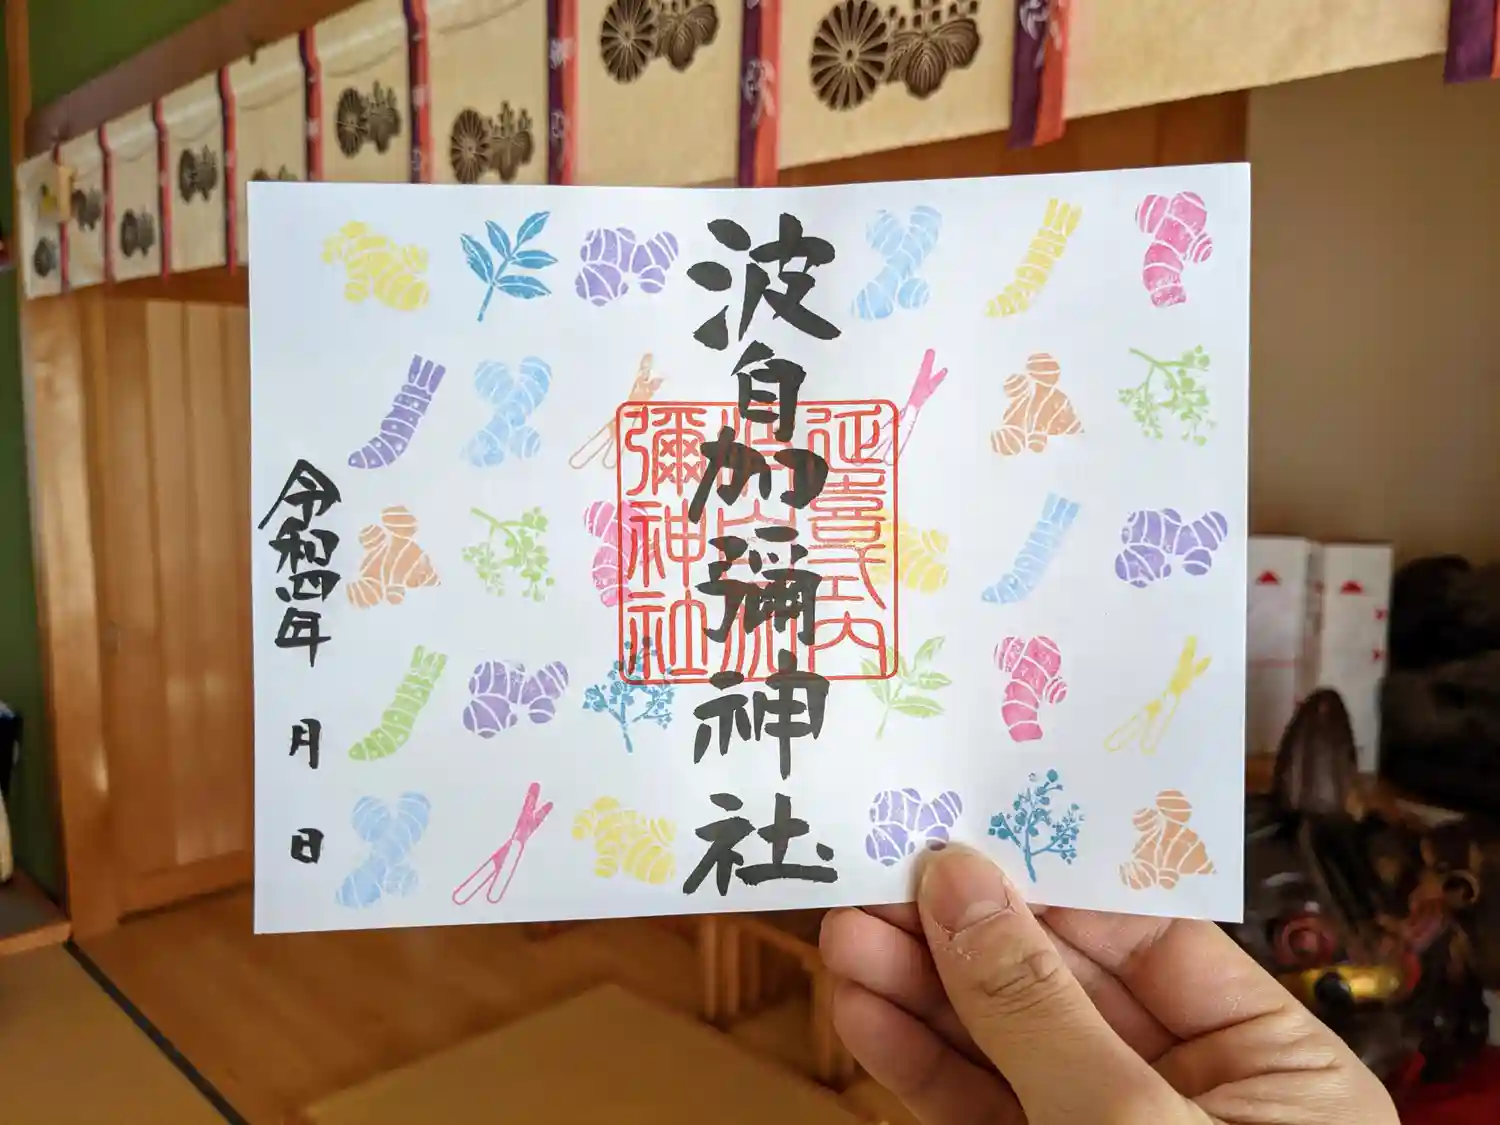 波自加彌神社
延喜式内
彌神社
令和四年 月 日